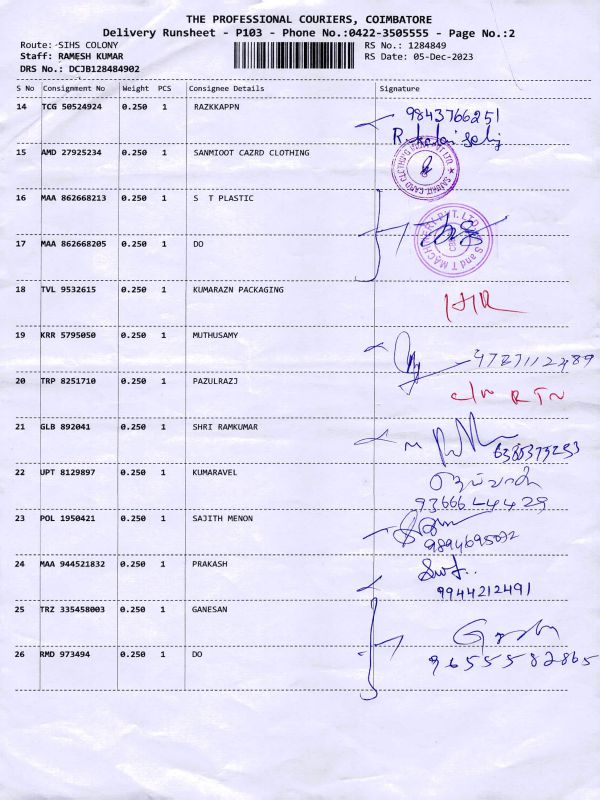 THE PROFESSIONAL COURIERS, COIMBATORE
Delivery Runsheet - P103 - Phone No.:0422-3505555 - Page No.:2
Route: SIHS COLONY RS No.: 1284849
Staff: RAMESH KUMAR RS Date: 05-Dec-2023
DRS No.: DCJB128484902
S No Consignment No Weight PCS Consignee Details Signature
14 TCG 50524924 0.250 1 RAZKKAPPN 9843766251
15 AMD 27925234 0.250 1 SANMIOOT CAZRD CLOTHING
16 MAA 862668213 0.250 1 S T PLASTIC
17 MAA 862668205 0.250 1 DO
S and T MACHINERY PVT. LTD
18 TVL 9532615 0.250 1 KUMARAZN PACKAGING
19 KRR 5795050 0.250 1 MUTHUSAMY
20 TRP 8251710 0.250 1 PAZULRAZJ c/n RTN
21 GLB 892041 0.250 1 SHRI RAMKUMAR
22 UPT 8129897 0.250 1 KUMARAVEL
23 POL 1950421 0.250 1 SAJITH MENON
24 MAA 944521832 0.250 1 PRAKASH
9944212491
25 TRZ 335458003 0.250 1 GANESAN
26 RMD 973494 0.250 1 DO 9655582865